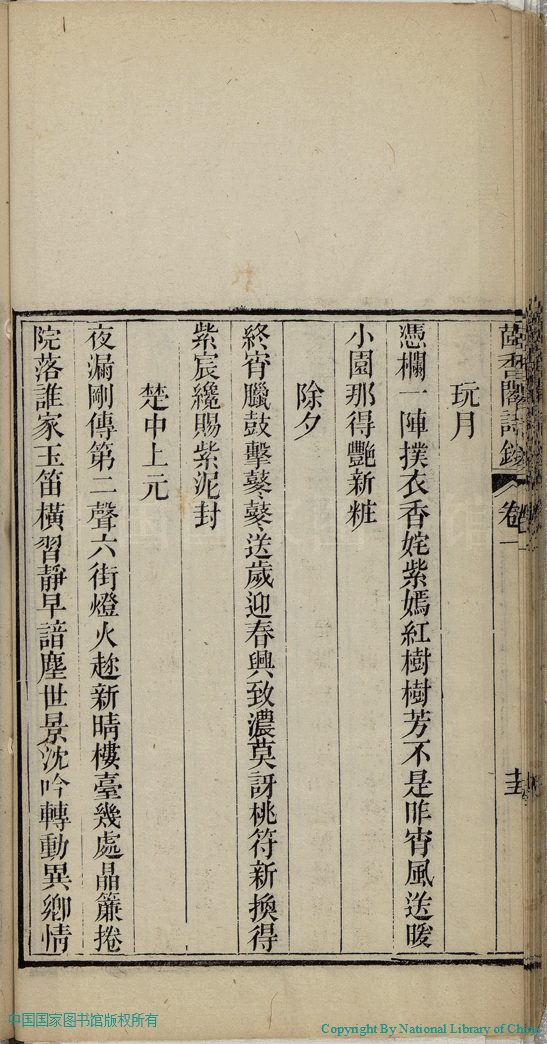 茴香閣詩鈔 卷一
玩月
憑欄一陣撲衣香姹紫嫣紅樹樹芳不是昨宵風送暖
小園那得艷新粧
除夕
終宵臘鼓擊鼕鼕送歲迎春興致濃莫訝桃符新換得
紫宸纔賜紫泥封
楚中上元
夜漏剛傳第二聲六街燈火趂新晴樓臺幾處晶簾捲
院落誰家玉笛橫習靜早諳塵世景沈吟轉動異鄉情
中国国家图书馆版权所有
Copyright By National Library of China